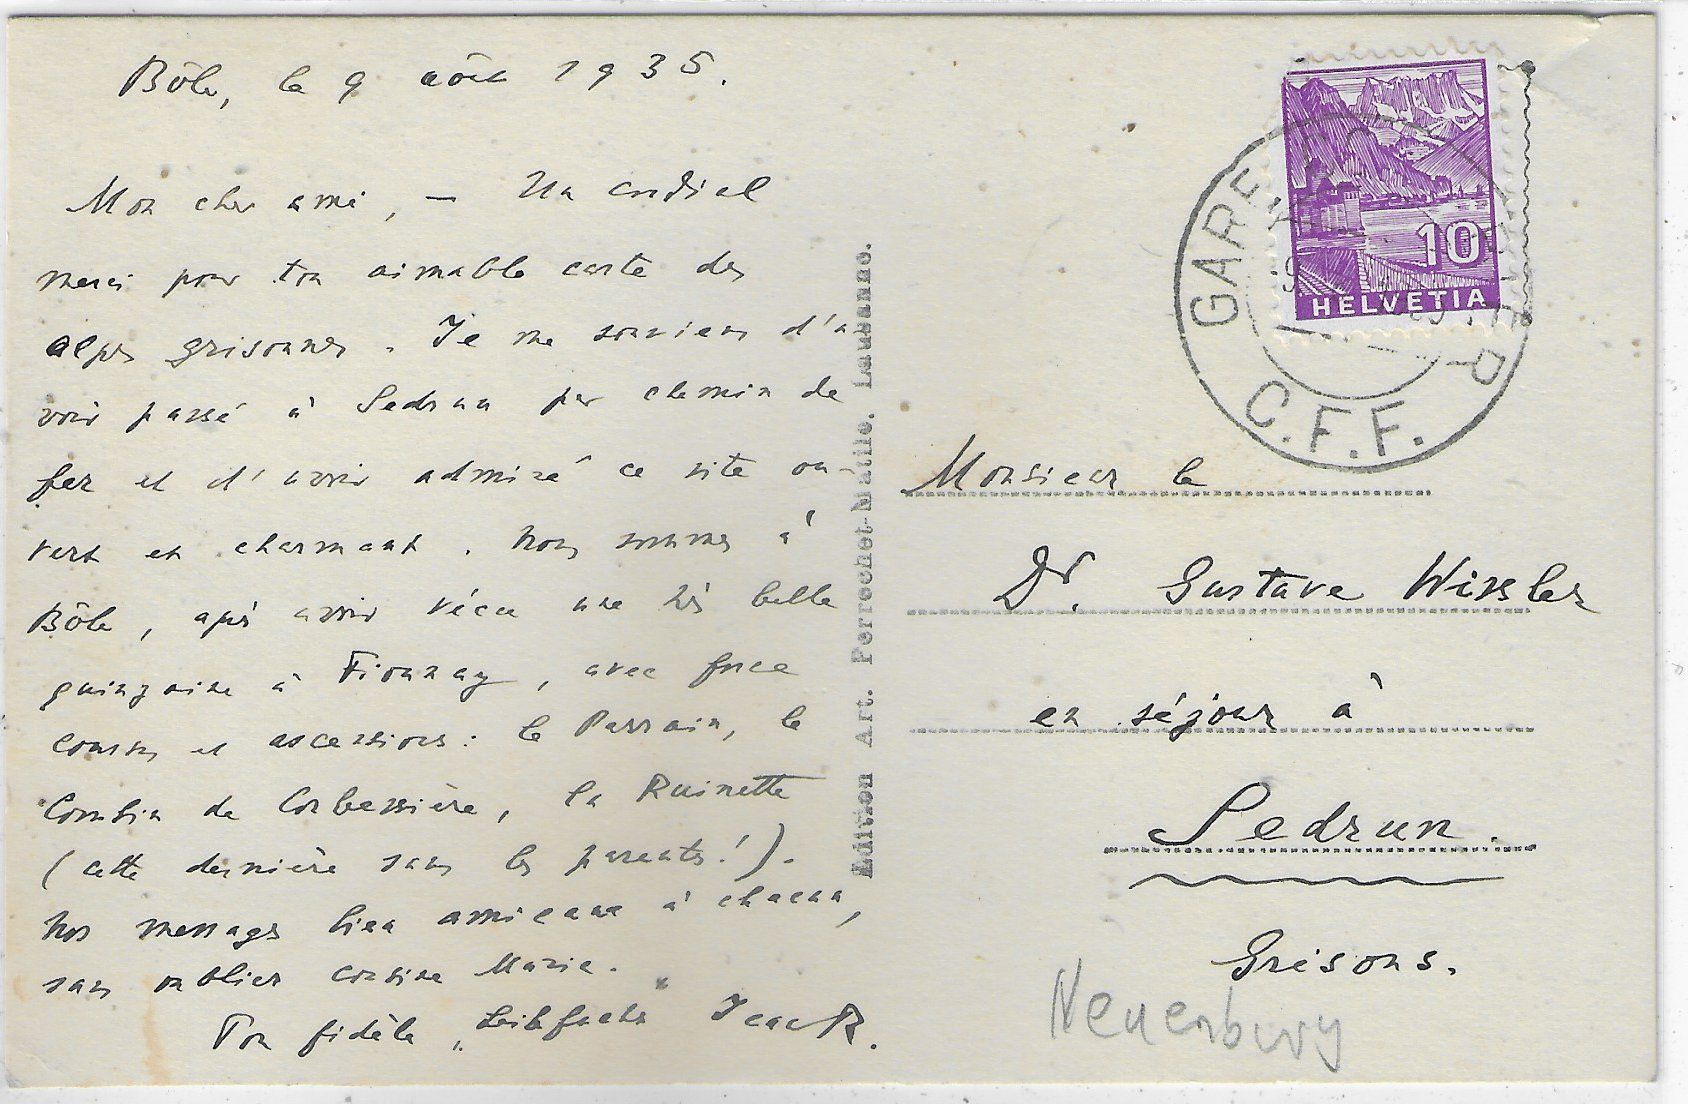 Bôle, le 9 août 1935.
Mon cher ami, — Un cordial
merci pour ton aimable carte des
alpes grisonnes. Je me souviens d'a
voir passé à Sedrun par chemin de
fer et d'avoir admiré ce site ou-
vert et charmant. Nous sommes à
Bôle, après avoir vécu une très belle
quinzaine à Fionnay, avec force
courses et ascensions: le Parrain, le
Combin de Corbassière, la Ruinette
(cette dernière sans les parents!).
Nos messages bien amicaux à chacun,
sans oublier cousine Marie.
Ton fidèle „Leibfuchs" Jean R.
Edition Art. Perrochet-Matile. Lausanne.
HELVETIA
10
GARE
C.F.F.
Monsieur le
Dr. Gustave Wissler
en séjour à
Sedrun.
Grisons.
Neuenburg